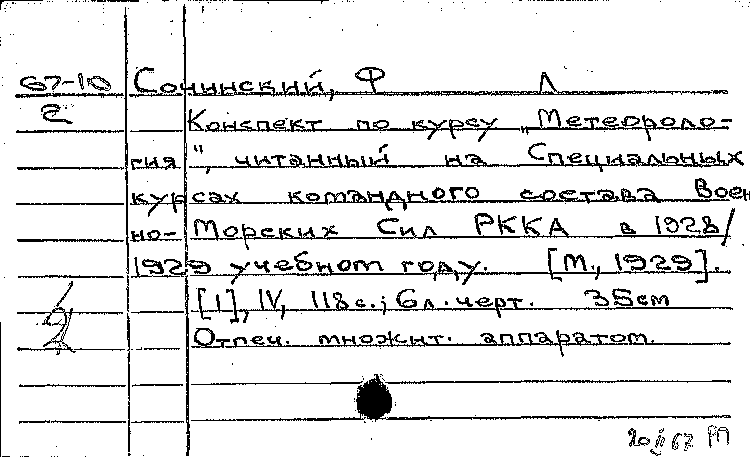 67-10 Сочинский, Ф Л
2 Конспект по курсу „Метеороло-
гия“, читанный на Специальных
курсах командного состава Воен
но-Морских Сил РККА в 1928/
1929 учебном году. [М., 1929].
[1], IV, 118 с.; 6 л. черт. 35 см
Отпеч. множит. аппаратом.
20 II 67 РП